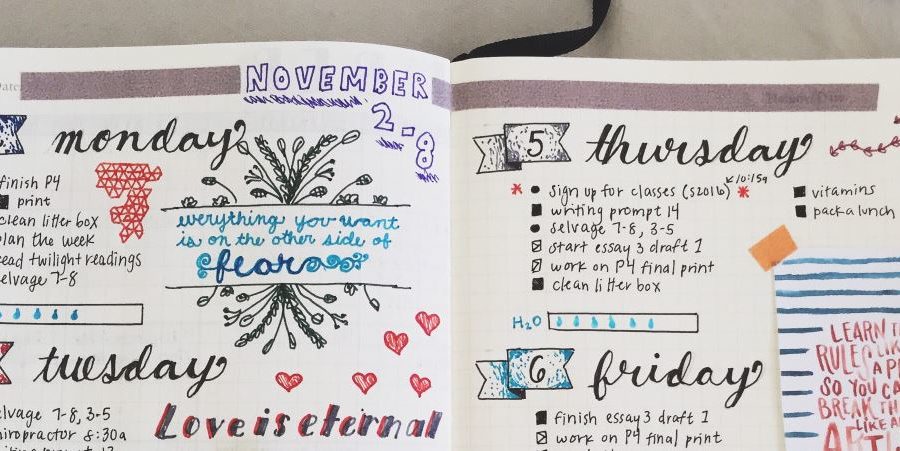 NOVEMBER
2-8
monday
finish P4
print
clean litter box
plan the week
read twilight readings
selvage 7-8
everything you want
is on the other side of
fear
tuesday
selvage 7-8, 3-5
chiropractor 8:30a
Love is eternal
5 thursday
sign up for classes (S2016) 10:15a
writing prompt 14
selvage 7-8, 3-5
start essay 3 draft 1
work on P4 final print
clean litter box
vitamins
pack a lunch
H2O
6 friday
finish essay 3 draft 1
work on P4 final print
LEARN
RULES LIKE
A
SO YOU CA
BREAK TH
LIKE A